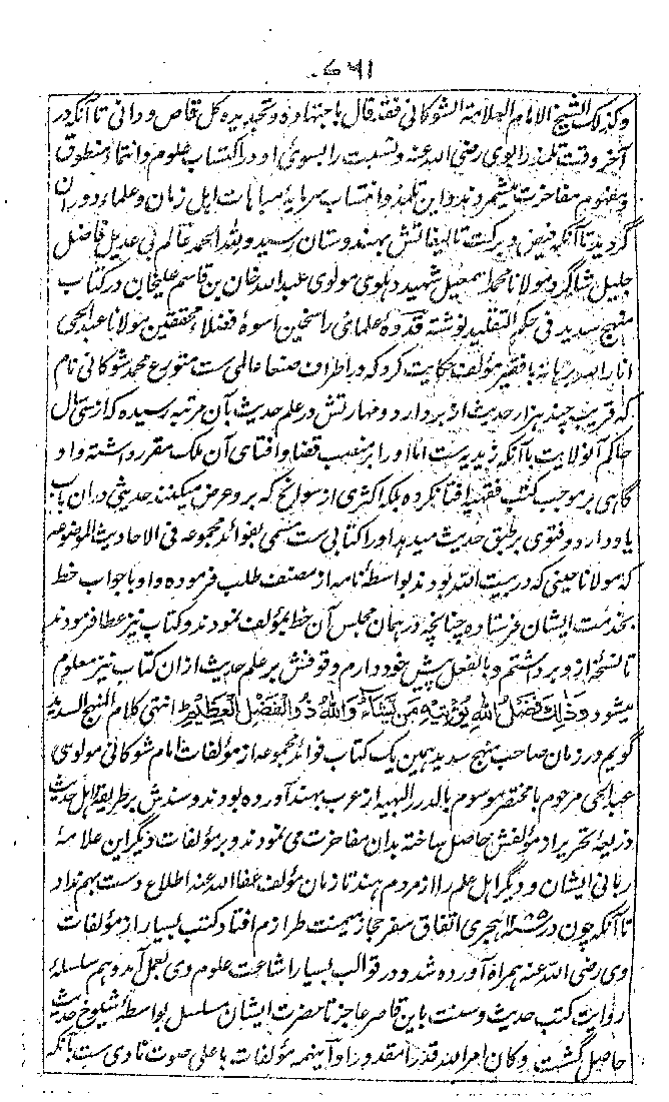 ۶۹۱
وکذلک الشیخ الامام العلامة الشوکانی فقد قال باجتهاده و تجدیده کل قاص و دانی تا آنکه در
آخر وقت تلمذ را بوی رضی الله عنه و نسبت را بسوئ او در اکتساب علوم و انتما منطوق
و مفهوم مفاخرت میشمردند و این تلمذ و انتساب سرمایهٔ مباهات اهل زمان و علماء دوران
گردید تا آنکه فیض و برکت تالیفاتش بهندوستان رسید ولله الحمد عالم بی عدیل فاضل
جلیل شاگرد مولانا محمد اسمعیل شهید دهلوی مولوی عبدالله خان بن قاسم علیخان در کتاب
منهج سدید فی حکم التقلید نوشته قدوهٔ علمائ راسخین اسوهٔ فضلاء محققین مولانا عبدالحی
انار الله برهانه با فقیر مؤلف حکایت کرد که در اطراف صنعا عالمی ست متورع محمد شوکانی نام
که قریب چند هزار حدیث ازبر دارد و مهارتش در علم حدیث بآن مرتبه رسیده که از سی سال
حاکم آنولایت با آنکه زیدیه ست اما او را بر منصب قضا و افتای آن ملک مقرر داشته و او
گاهی بر موجب کتب فقهیه افتا نکرده بلکه اکثری از سوانح که برو عرض میکنند حدیثی دران باب
یاد دارد و فتوی بر طبق حدیث میدهد او را کتابی ست مسمی بفوائد مجموعه فی الاحادیث الموضوعه
که مولانا حینی که در بیت الله بودند بواسطهٔ نامه از مصنف طلب فرموده و او با جواب خط
بخدمت ایشان فرستاده چنانچه در همان مجلس آن خط بمؤلف نمودند و کتاب نیز عطا فرمودند
تا نسخهٔ ازو برداشتم و بالفعل پیش خود دارم و وقوفش بر علم حدیث ازان کتاب نیز معلوم
میشود وَذٰلِكَ فَضْلُ اللهِ يُؤْتِيْهِ مَنْ يَّشَآءُ وَاللهُ ذُو الْفَضْلِ الْعَظِيْمِ انتهی کلام المنهج السدید
گویم در زمان صاحب منهج سدید همین یک کتاب فوائد مجموعه از مؤلفات امام شوکانی مولوی
عبدالحی مرحوم با مختصر موسوم بالدرر البهیه از عرب بهند آورده بودند و سندش بر طریقهٔ اهل حدیث
ذریعهٔ تحریر از مؤلفش حاصل ساخته بدان مفاخرت می نمودند و بر مؤلفات دیگر این علامهٔ
ربانی ایشان و دیگر اهل علم را از مردم هند تا زمان مؤلف عفا الله عنه اطلاع دست بهم نداد
تا آنکه چون در هجری اتفاق سفر حجاز میمنت طرازم افتاد کتب بسیار از مؤلفات
وی رضی الله عنه همراه آورده شد و در قوالب بسیار اشاعت علوم وی بعمل آمد و هم سلسلهٔ
روایت کتب حدیث و سنت باین قاصر عاجز تا حضرت ایشان مسلسل بواسطهٔ شیوخ حدیث
حاصل گشت و کان امر الله قدرا مقدورا و اینهمه مؤلفات باعلی صوت نادی ست بآنکه